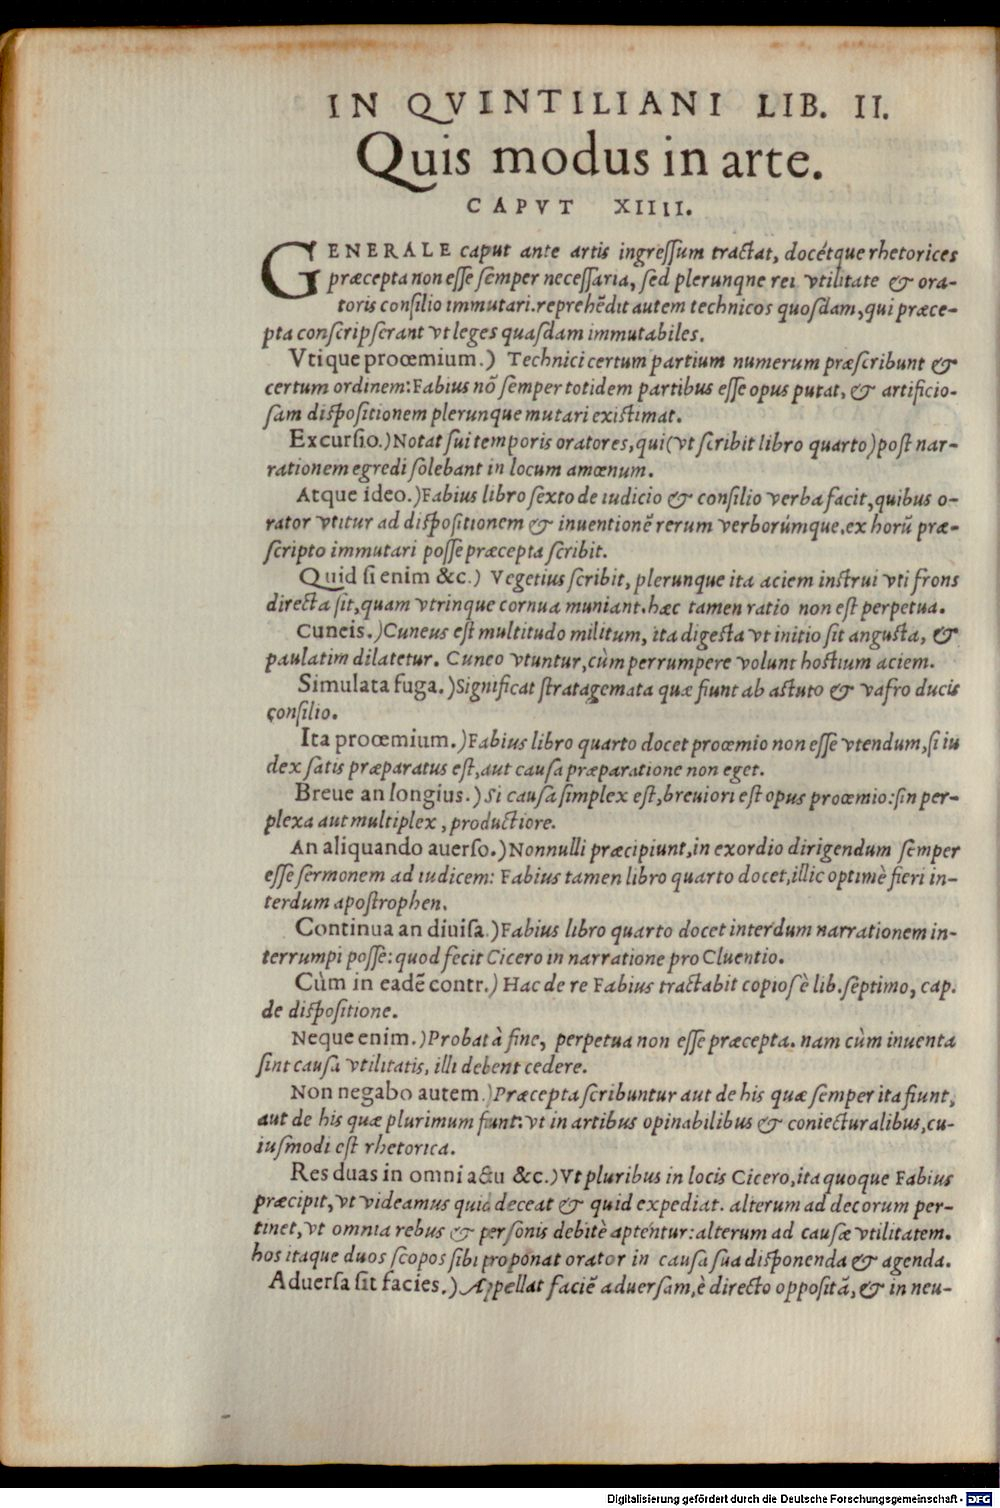 IN QVINTILIANI LIB. II.
Quis modus in arte.
CAPVT XIIII.
GENERALE caput ante artis ingreſſum tractat, docétque rhetorices
præcepta non eſſe ſemper neceſſaria, ſed plerunqne rei vtilitate & ora-
toris conſilio immutari. reprehēdit autem technicos quoſdam, qui præce-
pta conſcripſerant vt leges quaſdam immutabiles.
Vtique proœmium.) Technici certum partium numerum præſcribunt &
certum ordinem: Fabius nō ſemper totidem partibus eſſe opus putat, & artificio-
ſam diſpoſitionem plerunque mutari exiſtimat.
Excurſio.) Notat ſui temporis oratores, qui (vt ſcribit libro quarto) poſt nar-
rationem egredi ſolebant in locum amœnum.
Atque ideo.) Fabius libro ſexto de iudicio & conſilio verba facit, quibus o-
rator vtitur ad diſpoſitionem & inuentionē rerum verborúmque, ex horū præ-
ſcripto immutari poſſe præcepta ſcribit.
Quid ſi enim &c.) Vegetius ſcribit, plerunque ita aciem inſtrui vti frons
directa ſit, quam vtrinque cornua muniant. hæc tamen ratio non eſt perpetua.
Cuneis.) Cuneus eſt multitudo militum, ita digeſta vt initio ſit anguſta, &
paulatim dilatetur. Cuneo vtuntur, cùm perrumpere volunt hoſtium aciem.
Simulata fuga.) Significat ſtratagemata quæ fiunt ab aſtuto & vafro ducis
conſilio.
Ita proœmium.) Fabius libro quarto docet proœmio non eſſe vtendum, ſi iu
dex ſatis præparatus eſt, aut cauſa præparatione non eget.
Breue an longius.) Si cauſa ſimplex eſt, breuiori eſt opus proœmio: ſin per-
plexa aut multiplex, productiore.
An aliquando auerſo.) Nonnulli præcipiunt, in exordio dirigendum ſemper
eſſe ſermonem ad iudicem: Fabius tamen libro quarto docet, illic optimè fieri in-
terdum apoſtrophen.
Continua an diuiſa.) Fabius libro quarto docet interdum narrationem in-
terrumpi poſſe: quod fecit Cicero in narratione pro Cluentio.
Cùm in eadē contr.) Hac de re Fabius tractabit copioſè lib. ſeptimo, cap.
de diſpoſitione.
Neque enim.) Probat à fine, perpetua non eſſe præcepta. nam cùm inuenta
ſint cauſa vtilitatis, illi debent cedere.
Non negabo autem.) Præcepta ſcribuntur aut de his quæ ſemper ita fiunt,
aut de his quæ plurimum fiunt: vt in artibus opinabilibus & coniecturalibus, cu-
iuſmodi eſt rhetorica.
Res duas in omni actu &c.) Vt pluribus in locis Cicero, ita quoque Fabius
præcipit, vt videamus quid deceat & quid expediat. alterum ad decorum per-
tinet, vt omnia rebus & perſonis debitè aptentur: alterum ad cauſæ vtilitatem.
hos itaque duos ſcopos ſibi proponat orator in cauſa ſua diſponenda & agenda.
Aduerſa ſit facies.) Appellat faciē aduerſam, è directo oppoſitā, & in neu-
Digitalisierung gefördert durch die Deutsche Forschungsgemeinschaft - DFG